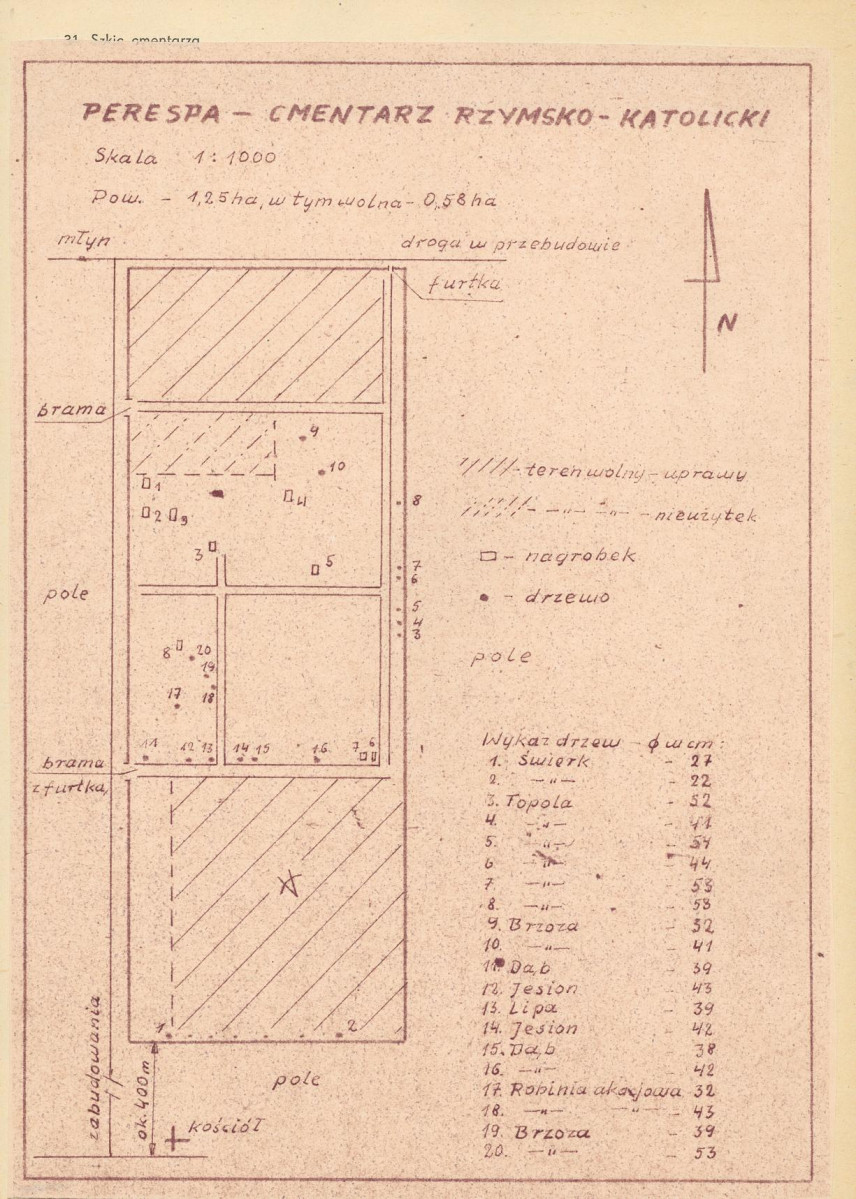 31. Szkic cmentarza
PERESPA – CMENTARZ RZYMSKO-KATOLICKI
Skala 1:1000
Pow. – 1,25 ha, w tym wolna – 0,58 ha
młyn
droga w przebudowie
furtka
N
brama
9
10
1
4
8
2 9
3
5
7
6
pole
5
4
3
8 20
19
17 18
11 12 13 14 15 16 7 6
brama
z furtką
1 2
zabudowania
ok. 400 m
pole
kościół
- teren wolny - uprawy
- —„— —„— - nieużytek
- nagrobek
- drzewo
pole
Wykaz drzew - ϕ w cm:
1. Świerk - 27
2. —„— - 22
3. Topola - 52
4. —„— - 41
5. —„— - 54
6. —„— - 44
7. —„— - 53
8. —„— - 53
9. Brzoza - 32
10. —„— - 41
11. Dąb - 39
12. Jesion - 43
13. Lipa - 39
14. Jesion - 42
15. Dąb 38
16. —„— - 42
17. Robinia akacjowa 32
18. —„— —„— - 43
19. Brzoza - 39
20. —„— - 53